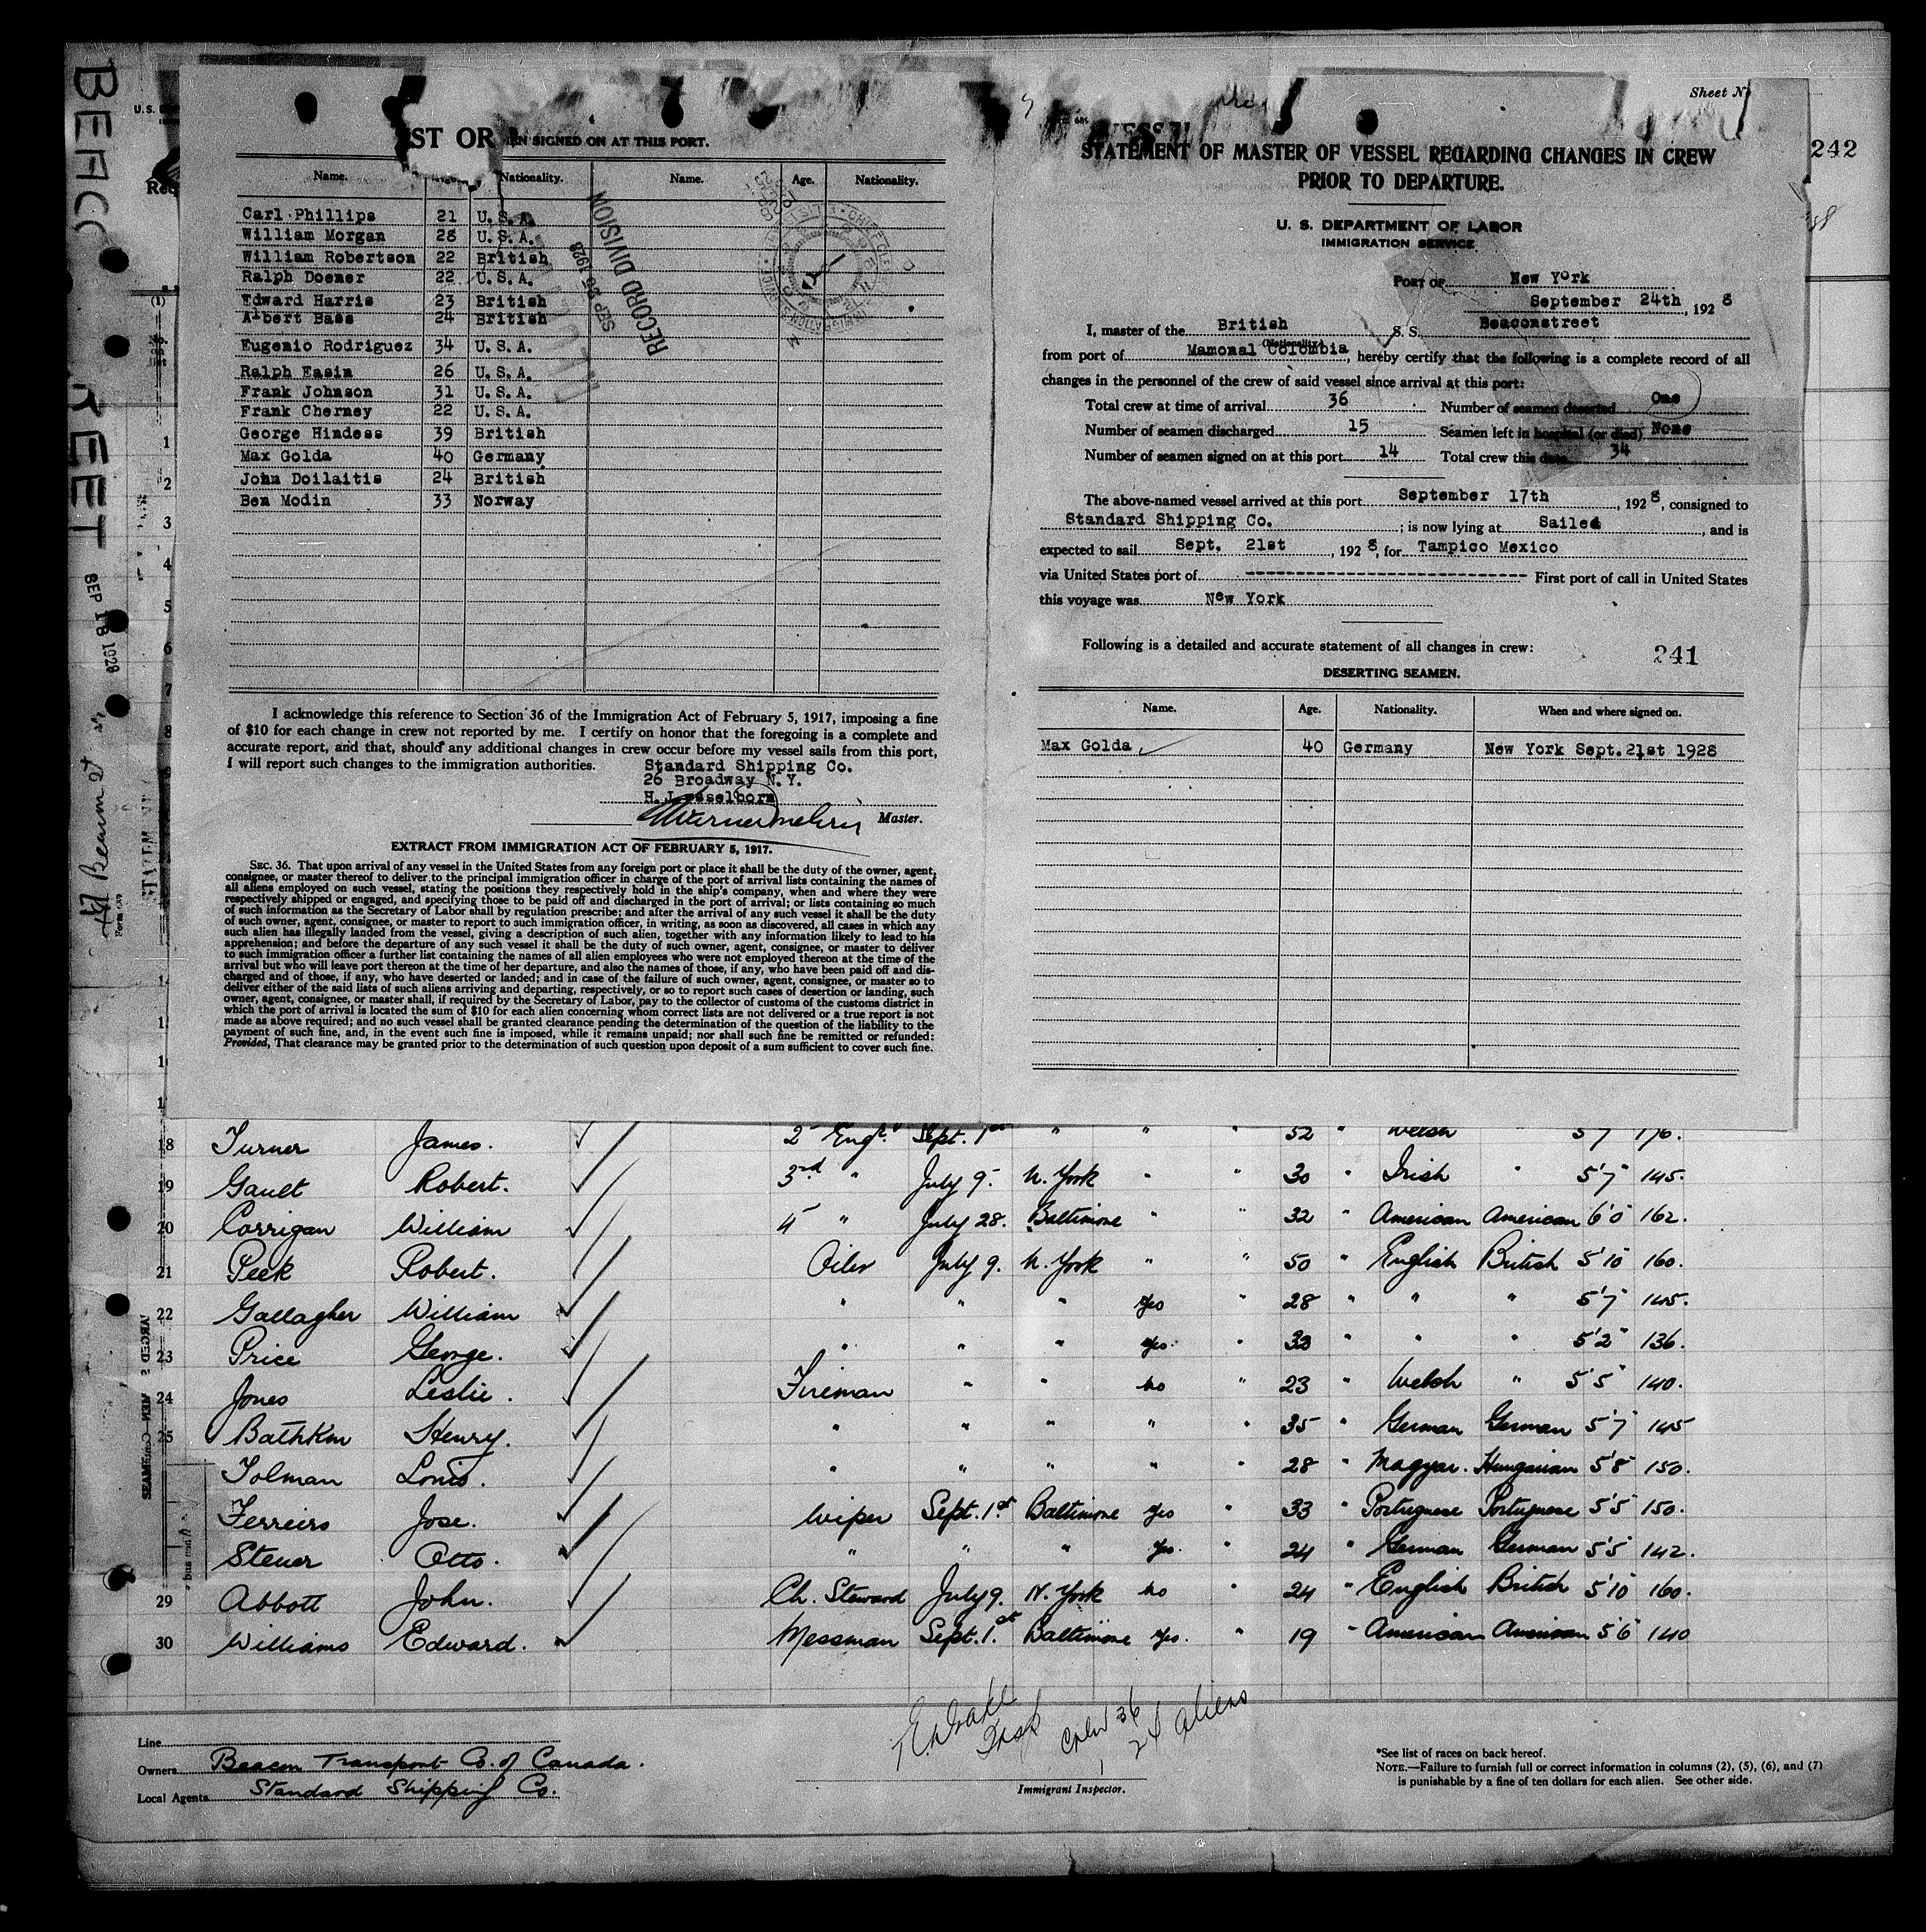 BEACO
REET
SEP 18 1928
U. S.
Sheet No
242
LIST OR
EN SIGNED ON AT THIS PORT.
Name. Nationality. Name. Age. Nationality.
Carl Phillips 21 U. S. A.
William Morgan 28 U. S. A.
William Robertson 22 British
Ralph Doemer 22 U. S. A.
Edward Harris 23 British
Albert Bass 24 British
Eugenio Rodriguez 34 U. S. A.
Ralph Easin 26 U. S. A.
Frank Johnson 31 U. S. A.
Frank Cherney 22 U. S. A.
George Hindess 39 British
Max Golda 40 Germany
John Doilaitis 24 British
Ben Modin 33 Norway
SEP 25 1928
RECORD DIVISION
I acknowledge this reference to Section 36 of the Immigration Act of February 5, 1917, imposing a fine
of $10 for each change in crew not reported by me. I certify on honor that the foregoing is a complete and
accurate report, and that, should any additional changes in crew occur before my vessel sails from this port,
I will report such changes to the immigration authorities.
Standard Shipping Co.
26 Broadway N. Y.
Master.
EXTRACT FROM IMMIGRATION ACT OF FEBRUARY 5, 1917.
SEC. 36. That upon arrival of any vessel in the United States from any foreign port or place it shall be the duty of the owner, agent,
consignee, or master thereof to deliver to the principal immigration officer in charge of the port of arrival lists containing the names of
all aliens employed on such vessel, stating the positions they respectively hold in the ship's company, when and where they were
respectively shipped or engaged, and specifying those to be paid off and discharged in the port of arrival; or lists containing so much
of such information as the Secretary of Labor shall by regulation prescribe; and after the arrival of any such vessel it shall be the duty
of such owner, agent, consignee, or master to report to such immigration officer, in writing, as soon as discovered, all cases in which any
such alien has illegally landed from the vessel, giving a description of such alien, together with any information likely to lead to his
apprehension; and before the departure of any such vessel it shall be the duty of such owner, agent, consignee, or master to deliver
to such immigration officer a further list containing the names of all alien employees who were not employed thereon at the time of the
arrival but who will leave port thereon at the time of her departure, and also the names of those, if any, who have been paid off and dis-
charged and of those, if any, who have deserted or landed; and in case of the failure of such owner, agent, consignee, or master so to
deliver either of the said lists of such aliens arriving and departing, respectively, or so to report such cases of desertion or landing, such
owner, agent, consignee, or master shall, if required by the Secretary of Labor, pay to the collector of customs of the customs district in
which the port of arrival is located the sum of $10 for each alien concerning whom correct lists are not delivered or a true report is not
made as above required; and no such vessel shall be granted clearance pending the determination of the question of the liability to the
payment of such fine, and, in the event such fine is imposed, while it remains unpaid; nor shall such fine be remitted or refunded:
Provided, That clearance may be granted prior to the determination of such question upon deposit of a sum sufficient to cover such fine.
STATEMENT OF MASTER OF VESSEL REGARDING CHANGES IN CREW
PRIOR TO DEPARTURE.
U. S. DEPARTMENT OF LABOR
IMMIGRATION SERVICE
PORT OF New York
September 24th, 1928
I, master of the British S. S. Beaconstreet
(Nationality)
from port of Mamonal Colombia, hereby certify that the following is a complete record of all
changes in the personnel of the crew of said vessel since arrival at this port:
Total crew at time of arrival 36 Number of seamen deserted One
Number of seamen discharged 15 Seamen left in hospital (or died) None
Number of seamen signed on at this port 14 Total crew this date 34
The above-named vessel arrived at this port September 17th, 1928, consigned to
Standard Shipping Co. ; is now lying at Sailed, and is
expected to sail Sept. 21st, 1928, for Tampico Mexico
via United States port of ---------------------------- First port of call in United States
this voyage was New York
Following is a detailed and accurate statement of all changes in crew:
241
DESERTING SEAMEN.
Name. Age. Nationality. When and where signed on.
Max Golda 40 Germany New York Sept. 21st 1928
18 Turner James. 2 Engr. Sept. 1st " " " 52 " Welsh 5'7 176.
19 Gault Robert. 3rd " July 9. N. York " " 30 " Irish " 5'7" 145.
20 Corrigan William 4 " July 28. Baltimore " " 32 " American American 6'0 162.
21 Peek Robert. Oiler July 9. N. York " " 50 " English British 5'10 160.
22 Gallagher William " " " Yes " 28 " " " 5'7" 145.
23 Price George. " " " Yes. " 33 " " " 5'2" 136.
24 Jones Leslie. Fireman " " No " 23 " Welsh " 5'5" 140.
25 Bathkm Henry. " " " " " 35 " German German 5'7" 145
Tolman Louis. " " " " " 28 " Magyar. Hungarian 5'8" 150.
Ferreiro Jose. Wiper Sept. 1st Baltimore Yes " 33 " Portuguese Portuguese 5'5" 150.
Steuer Otto. " " " Yes. " 24 " German German 5'5" 142.
29 Abbott John. Ch. Steward July 9. N. York No " 24 " English British 5'10" 160.
30 Williams Edward. Messman Sept. 1st Baltimore Yes. " 19 " American American 5'6" 140
Crew 36
24 aliens
Line
Owners Beacon Transport Co. of Canada.
Local Agents Standard Shipping Co.
Immigrant Inspector.
*See list of races on back hereof.
NOTE.—Failure to furnish full or correct information in columns (2), (5), (6), and (7)
is punishable by a fine of ten dollars for each alien. See other side.